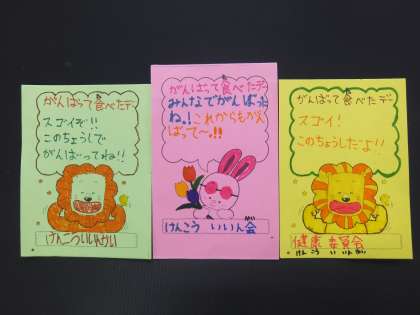 がんばって食べたデー
スゴイぞ!!
このちょうしで
がんばってね!!
けんこういいんかい
がんばって食べたデー
みんなでがんばった
ね。!これからもがん
ばって〜.!!
けんこう いいん会
がんばって食べたデー
スゴイ!
このちょうしだよ!!
健康 委員会
けんこう いいんかい